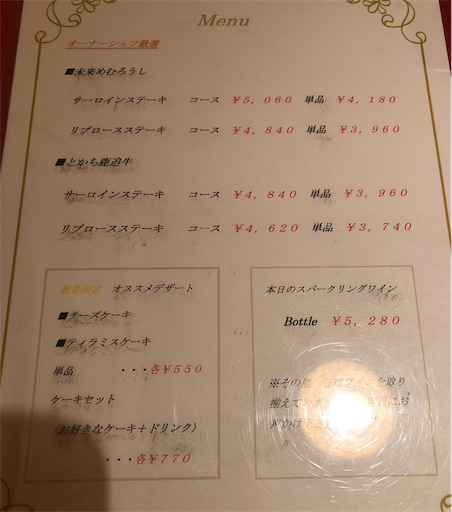 Menu
オーナーシェフ厳選
■未来めむろうし
サーロインステーキ コース ￥5,060 単品 ￥4,180
リブロースステーキ コース ￥4,840 単品 ￥3,960
■とかち鹿追牛
サーロインステーキ コース ￥4,840 単品 ￥3,960
リブロースステーキ コース ￥4,620 単品 ￥3,740
数量限定 オススメデザート
■チーズケーキ
■ティラミスケーキ
単品 ・・・各￥550
ケーキセット
(お好きなケーキ＋ドリンク)
・・・各￥770
本日のスパークリングワイン
Bottle ￥5,280
※その他 ワインを取り
揃えて